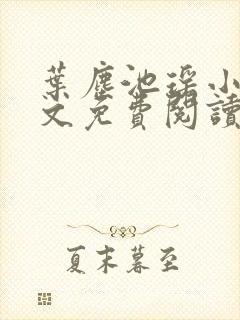 葉塵池瑤小
文免費閱讀
夏末暮至